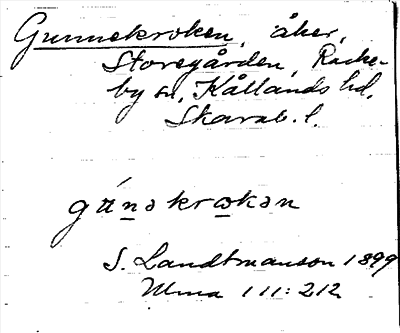 Gunnekroken, åker,
Storegården, Racke-
by sn, Kållands hd,
Skarab. l.
gu̇́nəkrɷkən
S. Landtmanson 1899
111:212